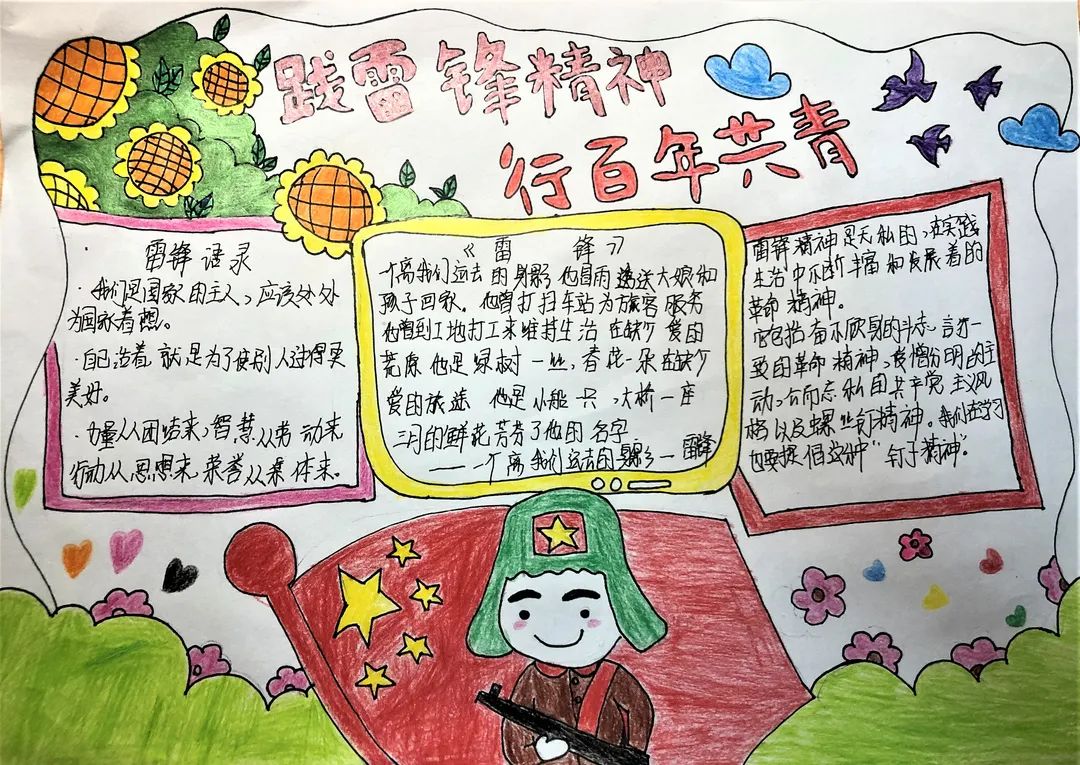 践雷锋精神
行百年共青
雷锋语录
·我们是国家的主人,应该处处
为国家着想。
·自己活着,就是为了使别人过得更
美好。
·力量从团结来,智慧从劳动来
行动从思想来,荣誉从集体来。
《雷锋》
一个离我们远去的身影 他冒雨送大娘和
孩子回家。他曾打扫车站为旅客服务
他曾到工地打工来维持生活 在缺少爱的
荒原 他是绿树一丝,春花一朵 在缺少
爱的旅途 他是小船一只,大桥一座
三月的鲜花芳芬了他的名字
——一个离我们远去的身影—雷锋
雷锋精神是无私的,在实践
生活中不断丰富和发展着的
革命精神。
它包括奋不顾身的斗志,言行一
致的革命精神,爱憎分明的主
动,公而忘私的共产党主义风
格以及螺丝钉精神。我们在学习
也要提倡这种“钉子精神”。